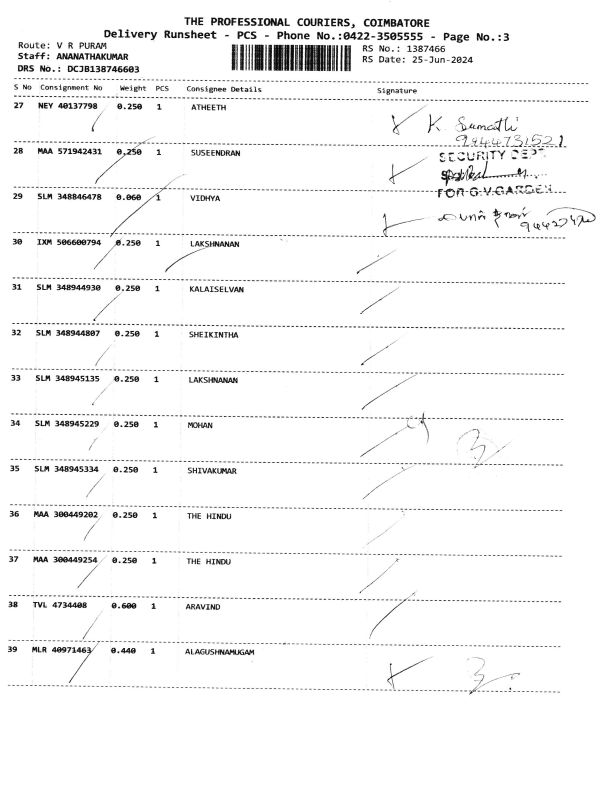 THE PROFESSIONAL COURIERS, COIMBATORE
Delivery Runsheet - PCS - Phone No.:0422-3505555 - Page No.:3
Route: V R PURAM
RS No.: 1387466
Staff: ANANATHAKUMAR
RS Date: 25-Jun-2024
DRS No.: DCJB138746603
S No Consignment No Weight PCS Consignee Details Signature
27 NEY 40137798 0.250 1 ATHEETH
K. Sumathi
9444731521
28 MAA 571942431 0.250 1 SUSEENDRAN
SECURITY DEPT
FOR G.V.GARDEN
29 SLM 348846478 0.060 1 VIDHYA
30 IXM 506600794 0.250 1 LAKSHNANAN
31 SLM 348944930 0.250 1 KALAISELVAN
32 SLM 348944807 0.250 1 SHEIKINTHA
33 SLM 348945135 0.250 1 LAKSHNANAN
34 SLM 348945229 0.250 1 MOHAN
35 SLM 348945334 0.250 1 SHIVAKUMAR
36 MAA 300449202 0.250 1 THE HINDU
37 MAA 300449254 0.250 1 THE HINDU
38 TVL 4734408 0.600 1 ARAVIND
39 MLR 40971463 0.440 1 ALAGUSHNAMUGAM